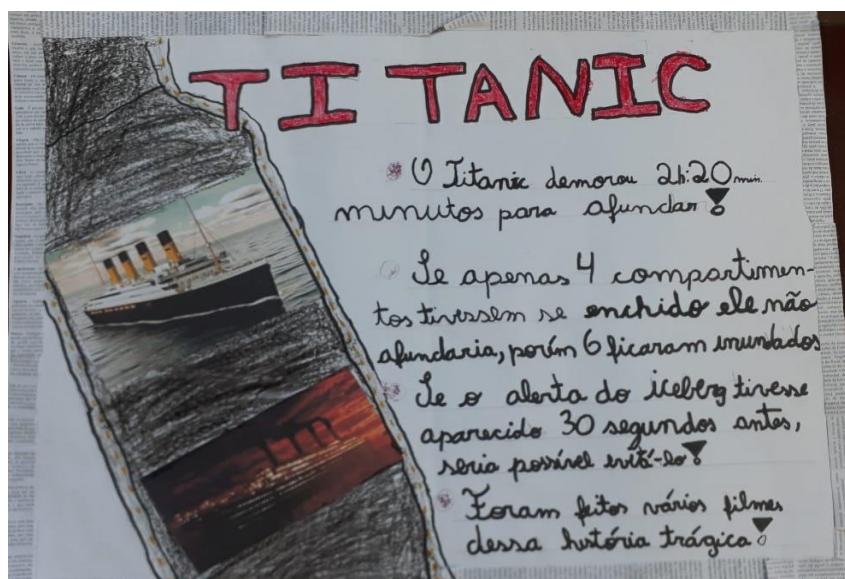 TITANIC
O Titanic demorou 2h:20min.
minutos para afundar!
Se apenas 4 compartimen-
tos tivessem se enchido ele não
afundaria, porém 6 ficaram inundados
Se o alerta do iceberg tivesse
aparecido 30 segundos antes,
seria possível evitá-lo!
Foram feitos vários filmes
dessa história trágica!